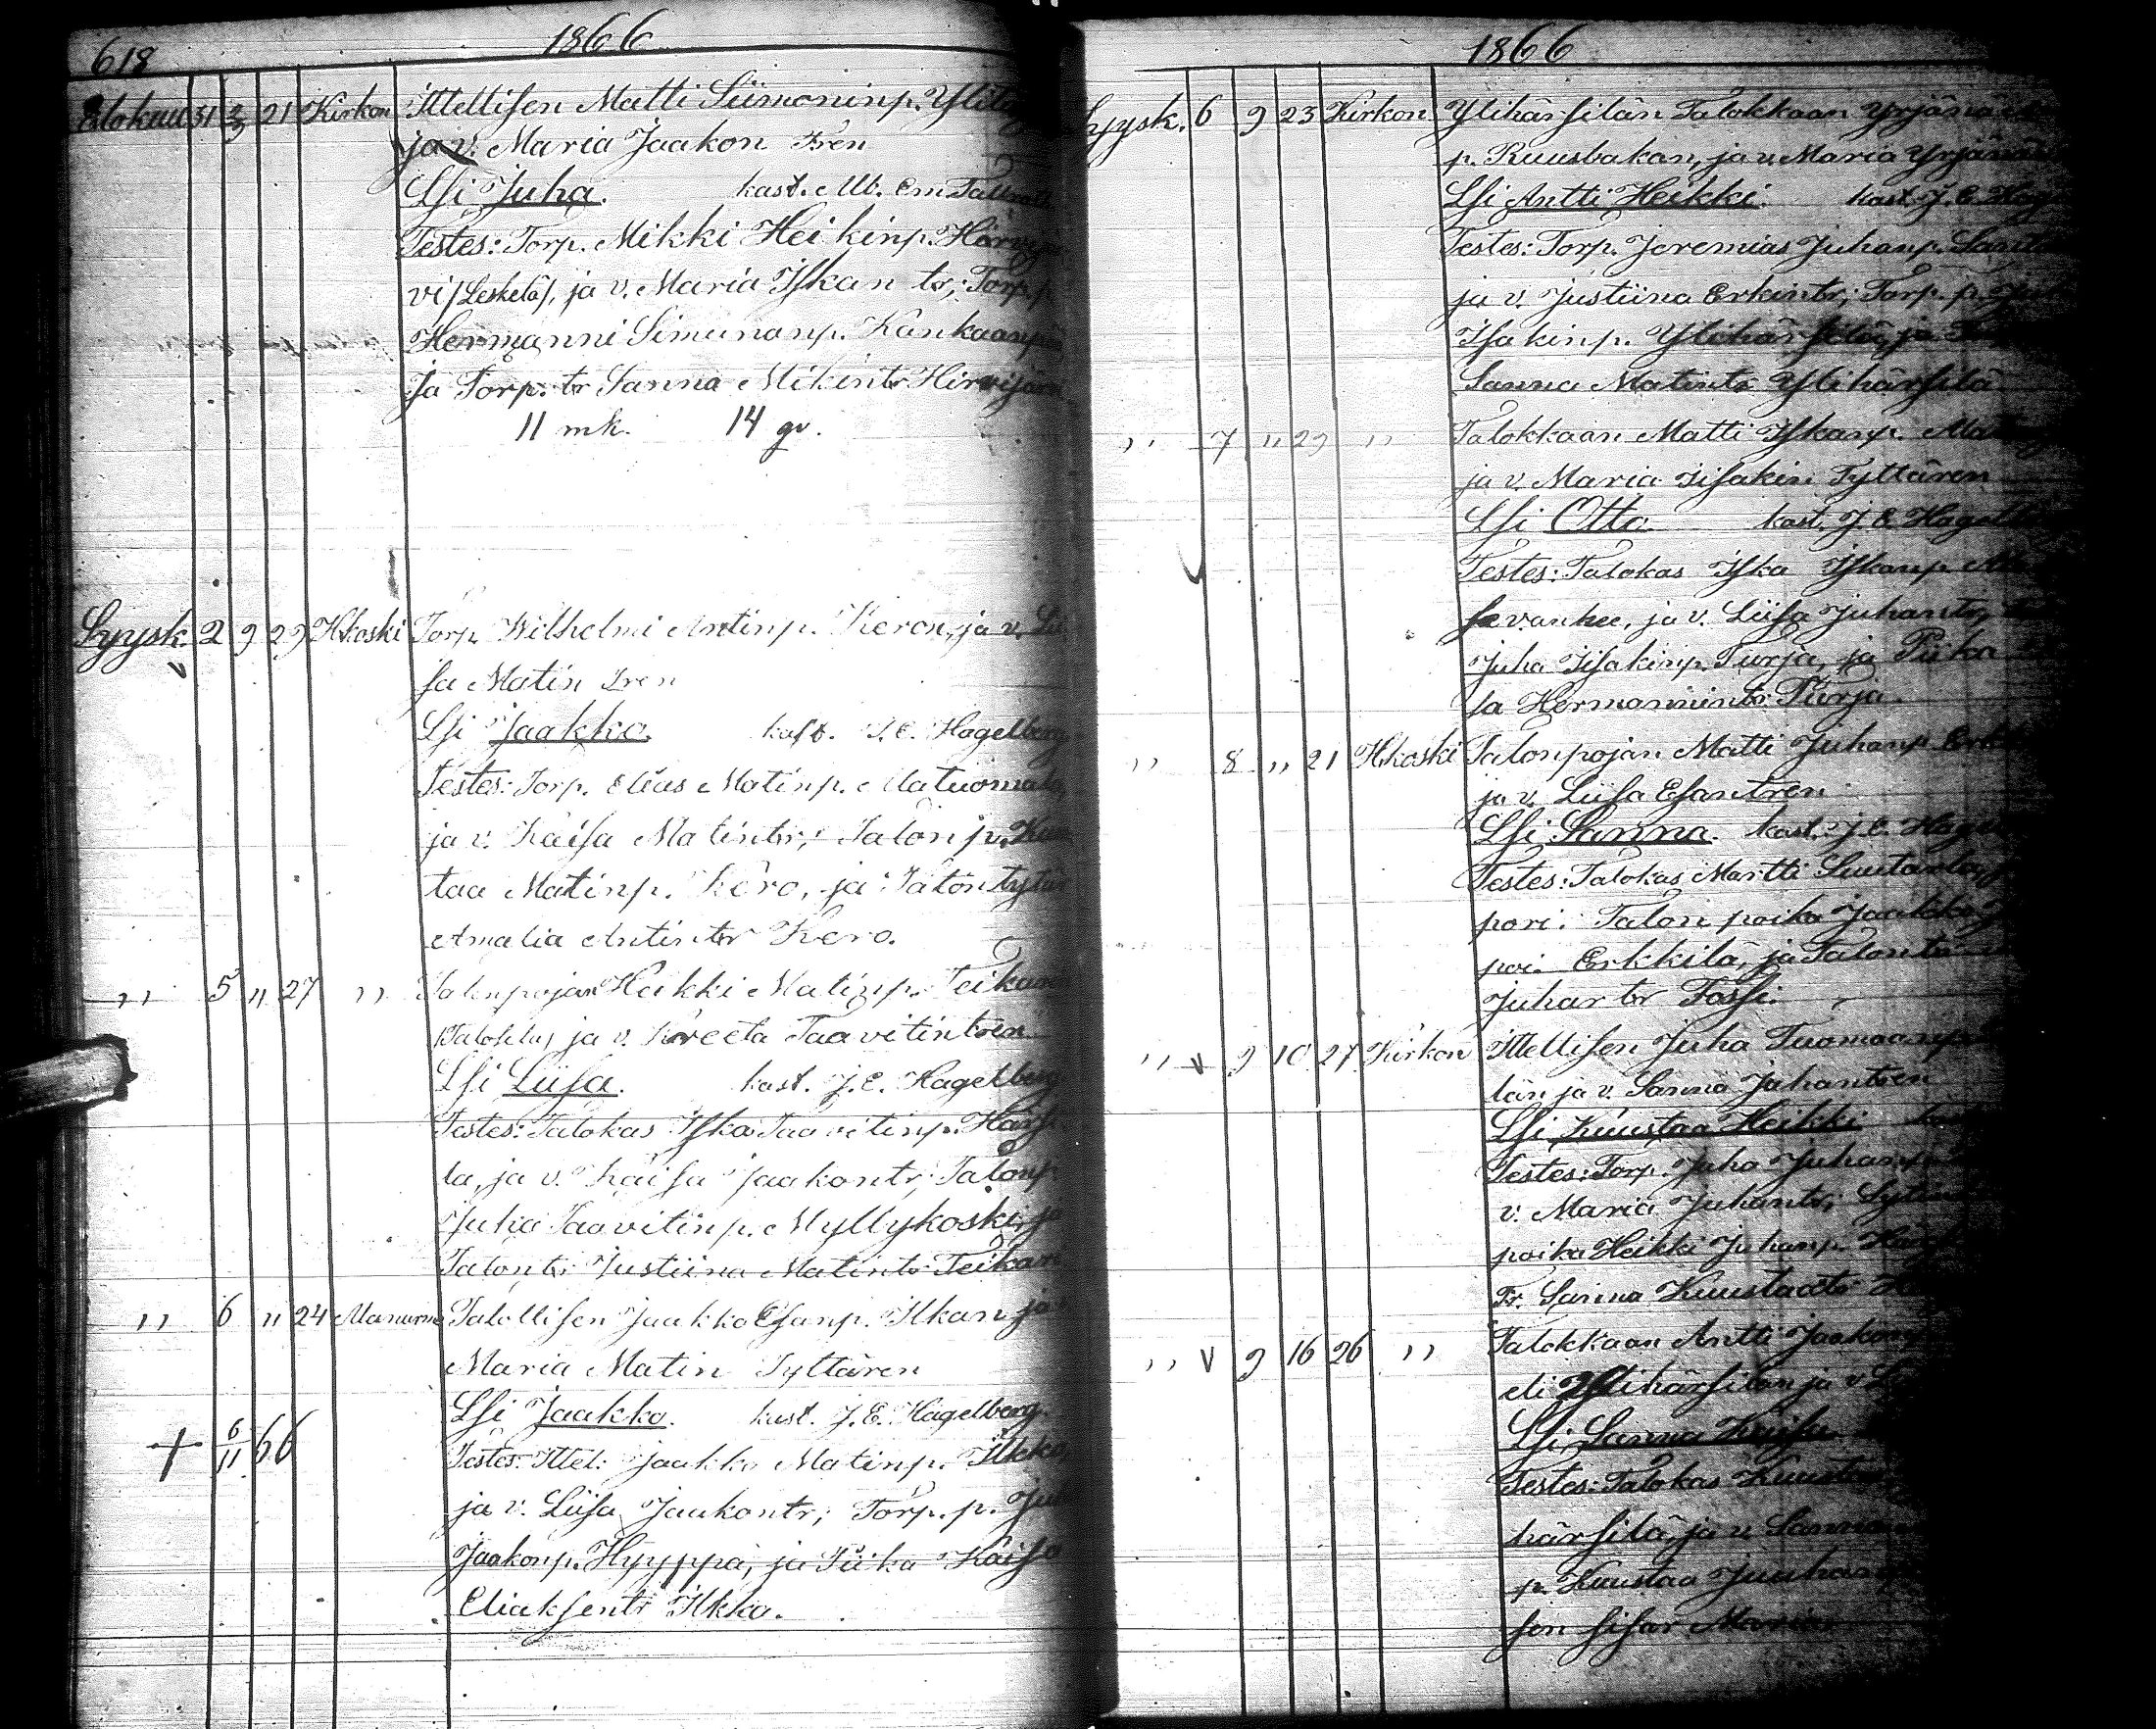 618 1866
Elokuu 31 3/9 21 Kirkon Ittellisen Matti Siimoninp.
ja v. Maria Jaakon tren
Lsi Juha. kast.
Testes: Torp. Mikki Heikinp.
vi/Leskelä/, ja v. Maria Iskan tr; Torp. p
Hermanni Simunanp. Kankaanpää
ja Torp. tr Sanna Mikintr Hirvijärvi
11 mk. 14 gv.
Syysk. 2 9 29 H.koski Torp. Wilhelmi Antinp. Keron, ja v. Lii
sa Matin tren
Lsi Jaakko. kast. J.E. Hagelberg
Testes: Torp. Elias Matinp. Matuomala,
ja v. Kaisa Matintr; Talon p. Kus
taa Matinp. Kero, ja Talon tytär
Amalia Antintr Kero.
,, 5 ,, 27 ,, Talonpojan Heikki Matinp. Teikarin
ja v. Kreeta Taavitintren
Lsi Liisa. kast. J.E. Hagelberg
Testes: Talokas Iska Taavitinp. Härsi
la, ja v. Kaisa Jaakontr; Talonp.
Juha Taavitinp. Myllykoski, ja
Talontr Justiina Matintr Teikari
,, 6 ,, 24 Talollisen Jaakko Esanp. Ilkan ja v
Maria Matin Tyttären
Lsi Jaakko. kast. J.E. Hagelberg.
+ 6/11 66 Testes: Ittel: Jaakko Matinp. Ilkka,
ja v. Liisa Jaakontr; Torp. p. Juh
Jaakonp. Hyyppä, ja Piika Kaisa
Eliaksentr Ilkka.
1866
Syysk. 6 9 23 Kirkon Ylihärsilän Talokkaan Yrjänä
p. Ruusbakan, ja v. Maria Yrjänän
Lsi Antti Heikki. kast. J.E. Hag
Testes: Torp. Jeremias Juhanp.
ja v. Justiina Erkintr; Torp. p.
Isakinp. Ylihärsilä, ja
Sanna Matintr Ylihärsilä
,, 7 ,, 29 ,, Talokkaan Matti Iskanp.
ja v. Maria Iisakin Tyttären
Lsi Otto kast. J E Hagelb
Testes: Talokas Iska Iskanp
vanhee, ja v. Liisa Juhantr,
Juha Iisakinp. Turja, ja Piika
sa Hermannintr Turja.
,, 8 ,, 21 H.koski Talonpojan Matti Juhanp. Erk
ja v. Liisa Esantren
Lsi Sanna. kast. J.E. Hage
Testes: Talokas Martti Luutarla,
pori. Talon poika Jaakko
poi. Erkkilä, ja Talontr
Juhantr Fossi.
,, 9 10 27 Kirkon Ittellisen Juha Tuomaanp
län ja v. Sanna Juhantren
Lsi Kuustaa Heikki
Testes: Torp. Juha Juhanp
v. Maria Juhantr;
poika Heikki Juhanp.
Tr. Sanna Kuustaatr
,, 9 16 26 ,, Talokkaan Antti Jaakon
eli Ylihärsilän ja v.
Lsi Sanna Kaisa
Testes: Talokas Kuusta
härsilä, ja v Sanna
p. Kuustaa Juuhan
sen sisar Maria